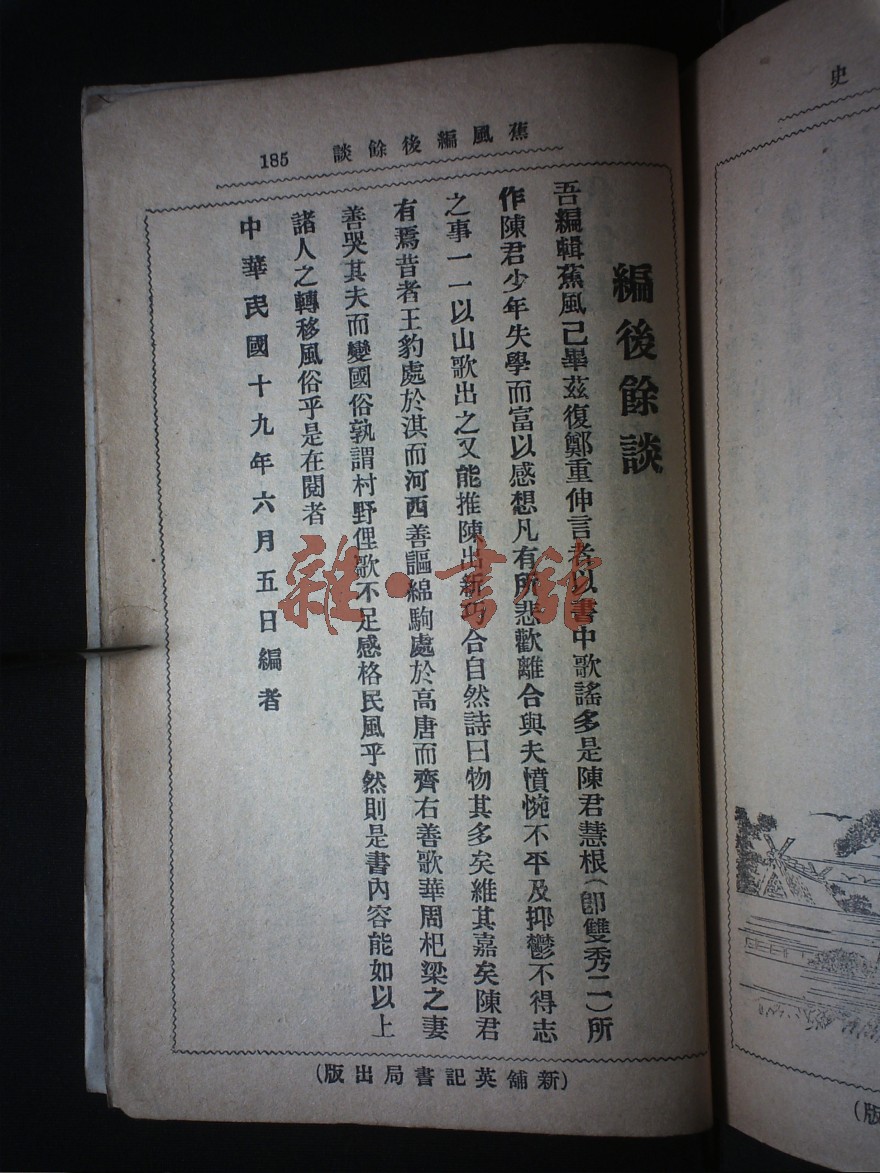 蕉風編後餘談 185
編後餘談
吾編輯蕉風已畢茲復鄭重伸言者以書中歌謠多是陳君慧根(卽雙秀二)所
作陳君少年失學而富以感想凡有所悲歡離合與夫憤惋不平及抑鬱不得志
之事一一以山歌出之又能推陳出新巧合自然詩曰物其多矣維其嘉矣陳君
有焉昔者王豹處於淇而河西善謳綿駒處於高唐而齊右善歌華周杞梁之妻
善哭其夫而變國俗孰謂村野俚歌不足感格民風乎然則是書內容能如以上
諸人之轉移風俗乎是在閱者
中華民國十九年六月五日編者
(新舖英記書局出版)
史
(版
雜·書館